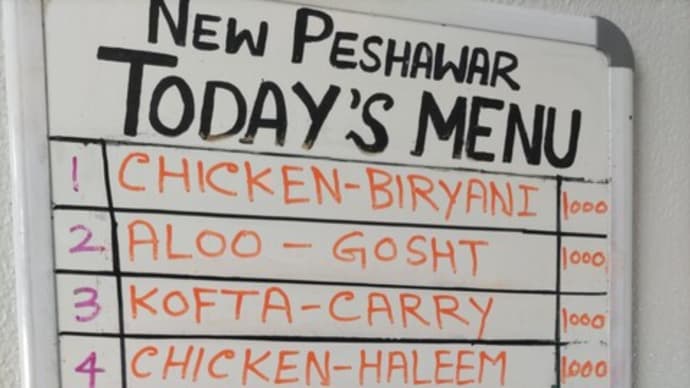 NEW PESHAWAR
TODAY'S MENU
1 CHICKEN-BIRYANI 1000
2 ALOO - GOSHT 1000
3 KOFTA-CARRY 1000
4 CHICKEN-HALEEM 1000